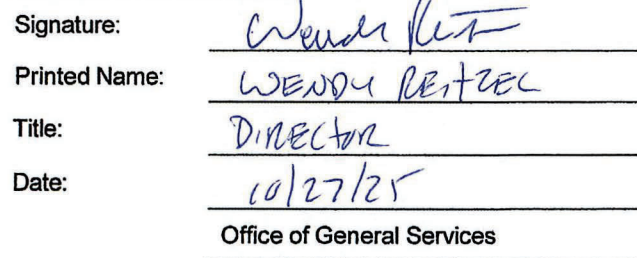 Signature: Wendy Reitzel
Printed Name: WENDY REITZEL
Title: DIRECTOR
Date: 10/27/25
Office of General Services